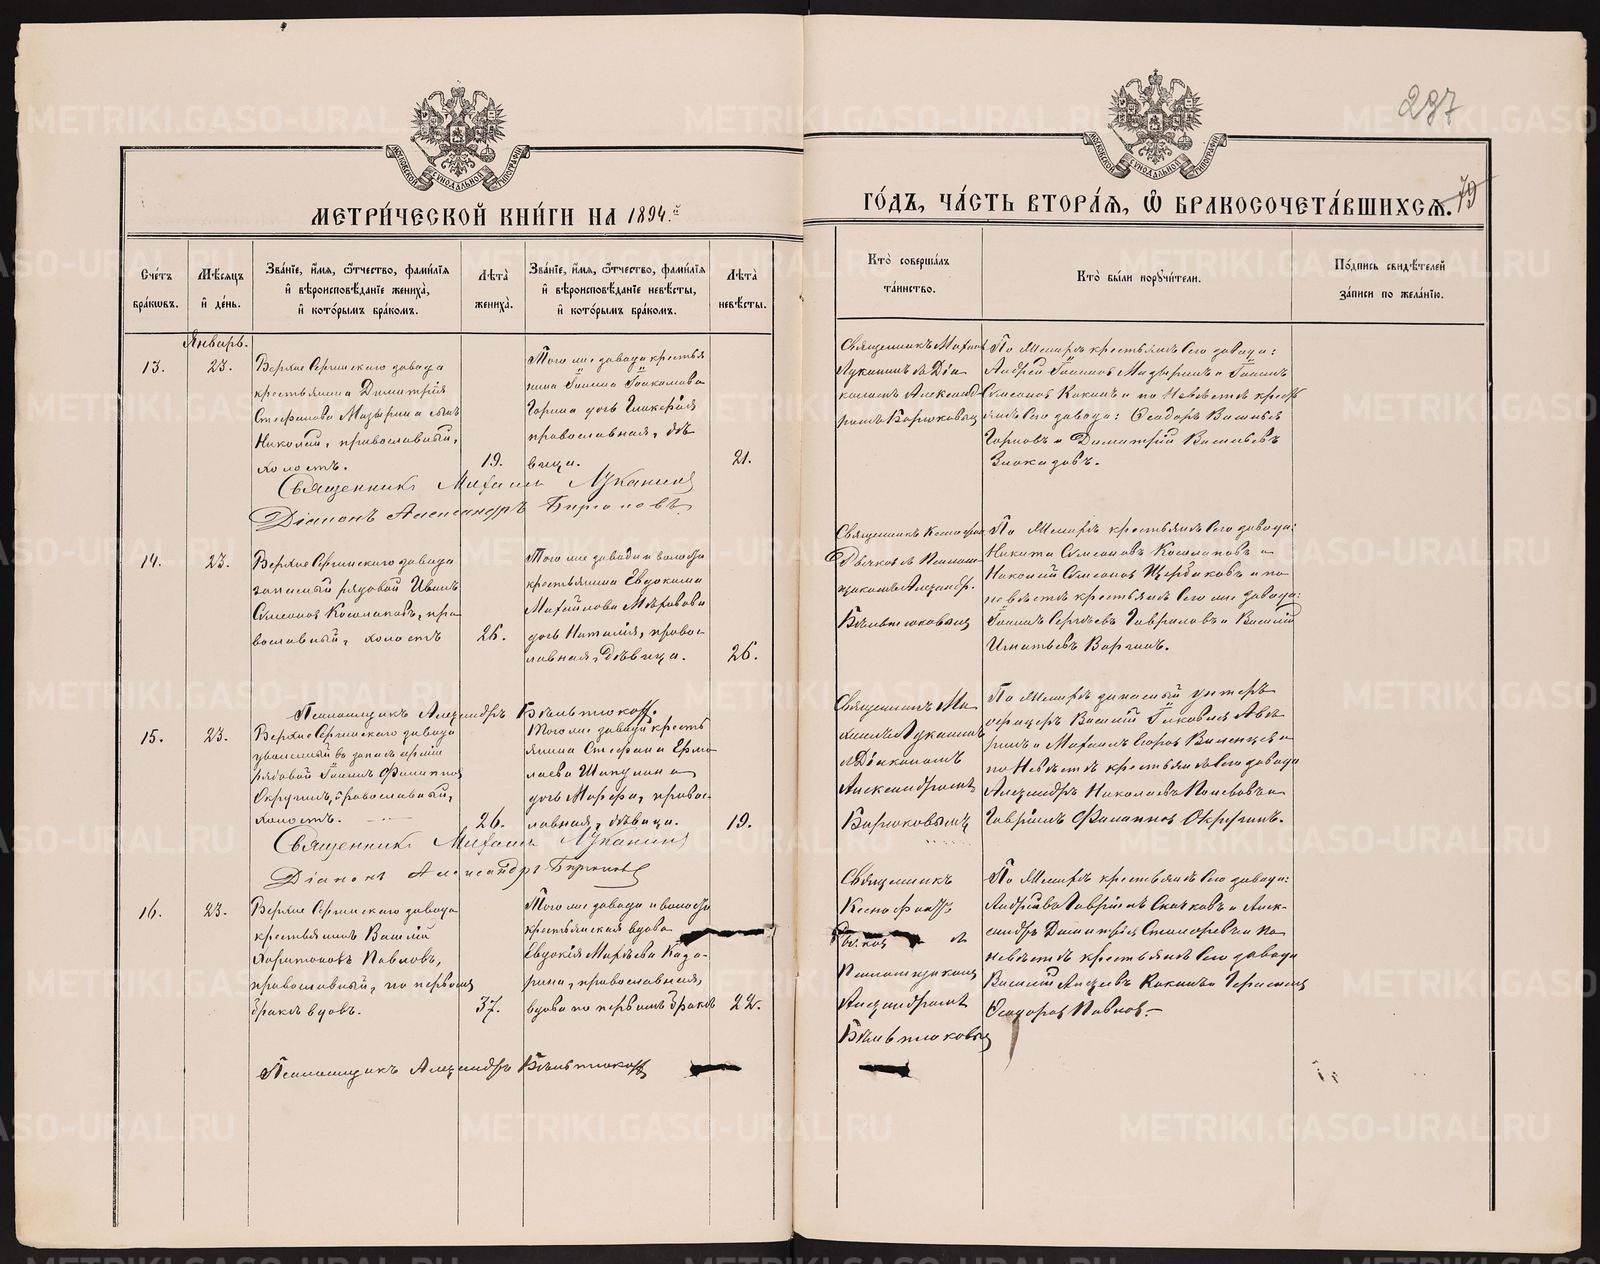 237
МОСКОВСКОЙ СУНОДАЛЬНОЙ ТУПОГРАФІИ
МОСКОВСКОЙ СУНОДАЛЬНОЙ ТУПОГРАФІИ
МЕТРИ́ЧЕСКОЙ КНИ́ГИ НА 1894.й
ГО́ДЪ, ЧА́СТЬ ВТОРА́Я, Ѽ БРАКОСОЧЕТА́ВШИХСѦ. 79
Сче́тъ
бра́кѡвъ.
Мѣ́сяцъ
и҆ де́нь.
Зва́нїе, и҆́мя, ѻ҆́тчество, фами́лїя
и҆ вѣроисповѣ́данїе жениха̀,
и҆ кото́рымъ бра́комъ.
Лѣта̀
жениха̀.
Зва́нїе, и҆́мя, ѻ҆́тчество, фами́лїя
и҆ вѣроисповѣ́данїе невѣ́сты,
и҆ кото́рымъ бра́комъ.
Лѣта̀
невѣ́сты.
Кто̀ соверша́лъ
та́инство.
Кто̀ бы́ли поручи́тели.
По́дпись свидѣ́телей
за́писи по жела́нїю.
Январь.
13.
23.
Верхне Сергинскаго завода
крестьянина Димитрія
Стефанова Мазырина сынъ
Николай, православный,
холостъ.
19.
Того же завода крестья
нина Іоанна
Горина дочь Гликерія
православная, дѣ
вица.
21.
Священникъ Михаилъ
Луканинъ съ Діа
кономъ Александ
ромъ
По Женихѣ крестьяне сего завода:
Андрей Іоанновъ Мазыринъ и Іоаннъ
Симеоновъ Кокинъ и по Невѣстѣ кресть
яне сего завода: Ѳеодоръ Васильевъ
Горновъ и Димитрій Васильевъ
Священникъ Михаилъ Луканинъ
Діаконъ Александръ
14.
23.
Верхне Сергинскаго завода
запасный рядовой Иванъ
Симеоновъ Косолаповъ, пра
вославный, холостъ
26.
Того же завода и волости
крестьянина Евдокима
Михайлова
дочь Наталія, правос-
лавная, дѣвица.
26.
Священникъ Ксенофонтъ
съ Псаломщ
щикомъ Александр.
По Женихѣ крестьяне сего завода:
Никита Симеоновъ Косолаповъ и
Николай Симеоновъ Щербаковъ и по
невѣстѣ крестьяне сего же завода:
Іоаннъ Сергѣевъ Гавриловъ и Василій
Игнатьевъ Варгинъ.
Псаломщикъ Александръ
15.
23.
Верхне Сергинскаго завода
уволенный въ запасъ арміи
рядовой Іоаннъ Филиппов
Округинъ, православный,
холостъ.
26.
Того же завода кресть
янина Стефана Ермо
лаева Шипулина
дочь Марфа, правос-
лавная, дѣвица.
19.
Священникъ Ми
хаилъ Луканинъ
съ Діакономъ
Александромъ
По Женихѣ запасный унтеръ
офицеръ Василій
и Михаилъ
по Невѣстѣ крестьяне сего завода
Александръ Николаевъ
Гавріилъ Филипповъ Округинъ.
Священникъ Михаилъ Луканинъ
Діаконъ Александръ
16.
23.
Верхне Сергинскаго завода
крестьянинъ Василій
Харитоновъ Павловъ,
православный, по первомъ
бракѣ вдовъ.
37.
Того же завода и волости
крестьянская вдова
Евдокія
православная,
вдова по первомъ бракѣ
22.
Священникъ
Ксенофонтъ
съ
Псаломщикомъ
Александромъ
По Женихѣ крестьяне сего завода:
Гавріилъ Скачковъ и Алек-
сандръ Димитріевъ и по
невѣстѣ крестьяне сего завода
Василій Кокинъ и Герасимъ
Ѳеодоровъ Павловъ.
Псаломщикъ Александръ
METRIKI.GASO-URAL.RU